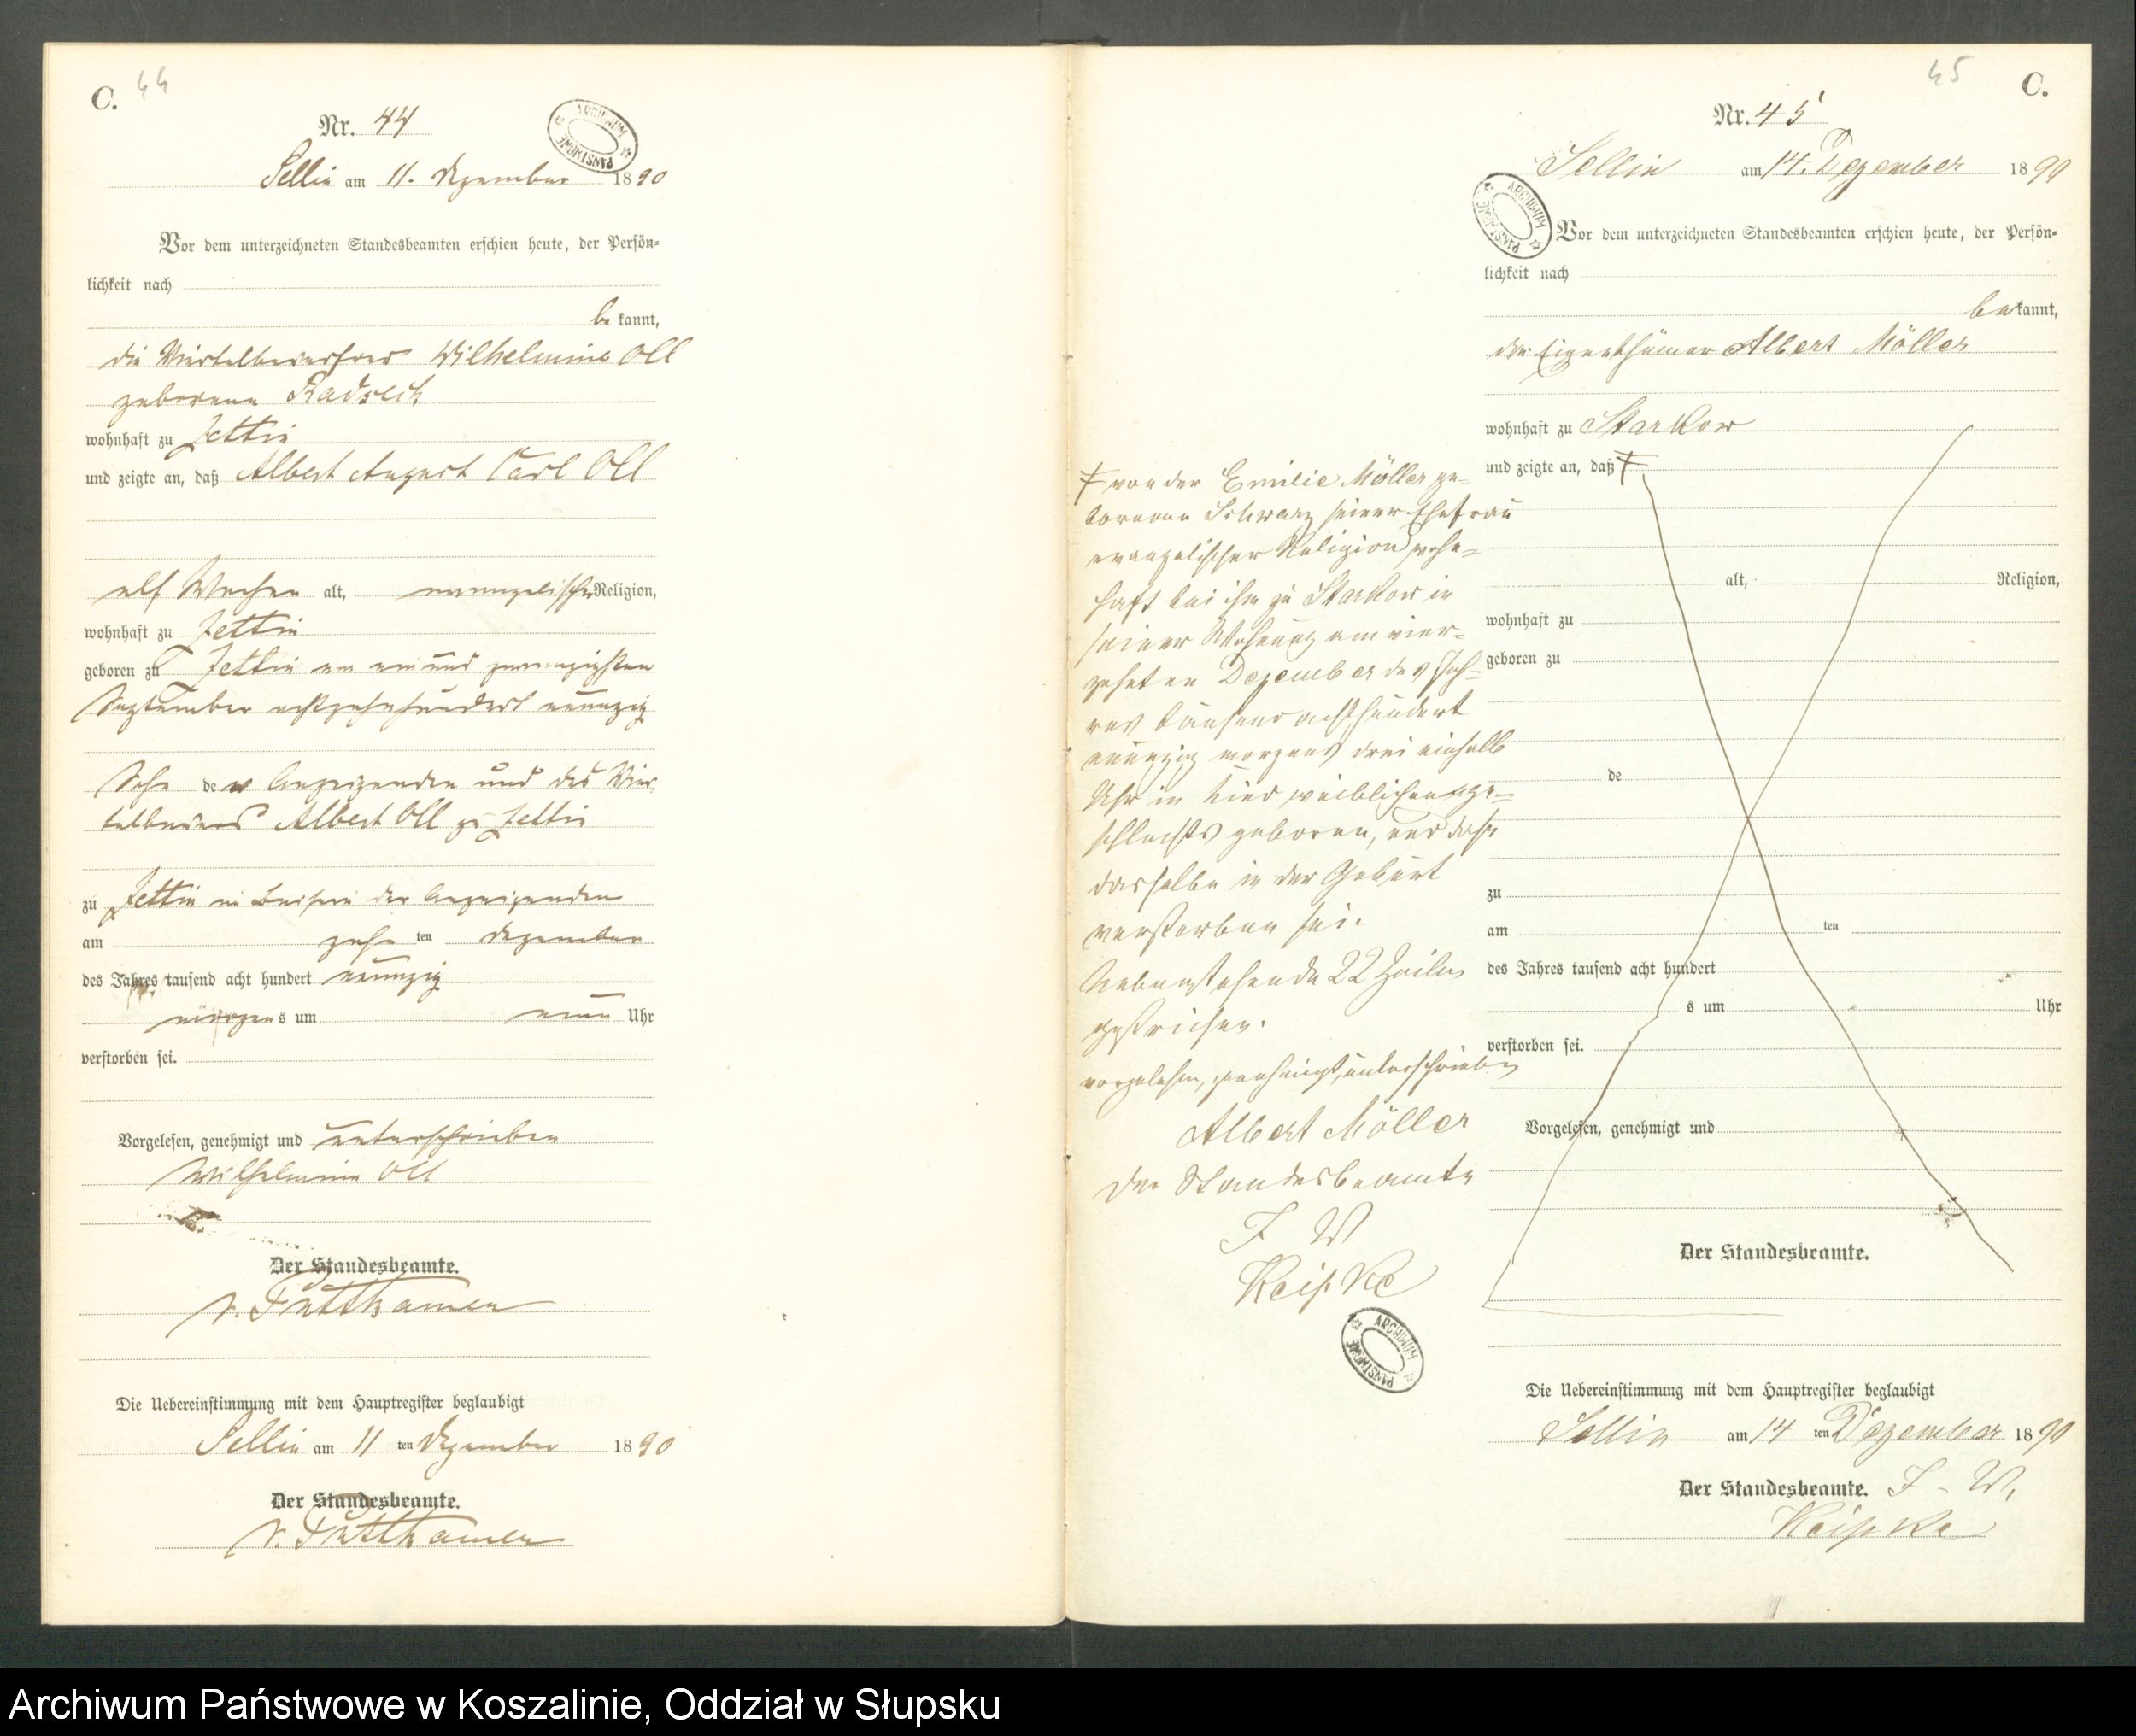 C. 44
Nr. 44
ARCHIWUM PAŃSTWOWE
Sellin am 11. Dezember 1890
Vor dem unterzeichneten Standesbeamten erschien heute, der Persön-
lichkeit nach
bekannt,
die Viertelbauersfrau Wilhelmine Oll
geborene
wohnhaft zu Jettin
und zeigte an, daß Albert August Carl Oll
elf Wochen alt, evangelischer Religion,
wohnhaft zu Jettin
geboren zu Jettin am einundzwanzigsten
September achtzehnhundert neunzig
Sohn der Anzeigenden und des Vier-
telbauers Albert Oll zu Jettin
zu Jettin in Beisein der Anzeigenden
am zehnten Dezember
des Jahres tausend acht hundert neunzig
morgens um neun Uhr
verstorben sei.
Vorgelesen, genehmigt und unterschrieben
Wilhelmine Oll
Der Standesbeamte.
v. Puttkamer
Die Uebereinstimmung mit dem Hauptregister beglaubigt
Sellin am 11 ten Dezember 1890
Der Standesbeamte.
v. Puttkamer
45 C.
Nr. 45
Sellin am 14. Dezember 1890
ARCHIWUM PAŃSTWOWE
Vor dem unterzeichneten Standesbeamten erschien heute, der Persön-
lichkeit nach
bekannt,
der Eigenthümer Albert Möller
wohnhaft zu Starkow
und zeigte an, daß †
† von der Emilie Möller ge-
borenen Schwarz seiner Ehefrau
evangelischer Religion wohn-
haft bei ihm zu Starkow in
seiner Wohnung am vier-
zehnten Dezember des Jah-
res tausend achthundert
neunzig morgens drei einhalb
Uhr ein Kind weiblichen Ge-
schlechts geboren, und daß
dasselbe in der Geburt
verstorben sei.
Nebenstehende 22 Zeilen
gestrichen.
vorgelesen, genehmigt, unterschrieben
Albert Möller
Der Standesbeamte
I W
Keipke
ARCHIWUM PAŃSTWOWE
alt, Religion,
wohnhaft zu
geboren zu
de
zu
am ten
des Jahres tausend acht hundert
s um Uhr
verstorben sei.
Vorgelesen, genehmigt und
Der Standesbeamte.
Die Uebereinstimmung mit dem Hauptregister beglaubigt
Sellin am 14 ten Dezember 1890
Der Standesbeamte. I. W.
Keipke
Archiwum Państwowe w Koszalinie, Oddział w Słupsku